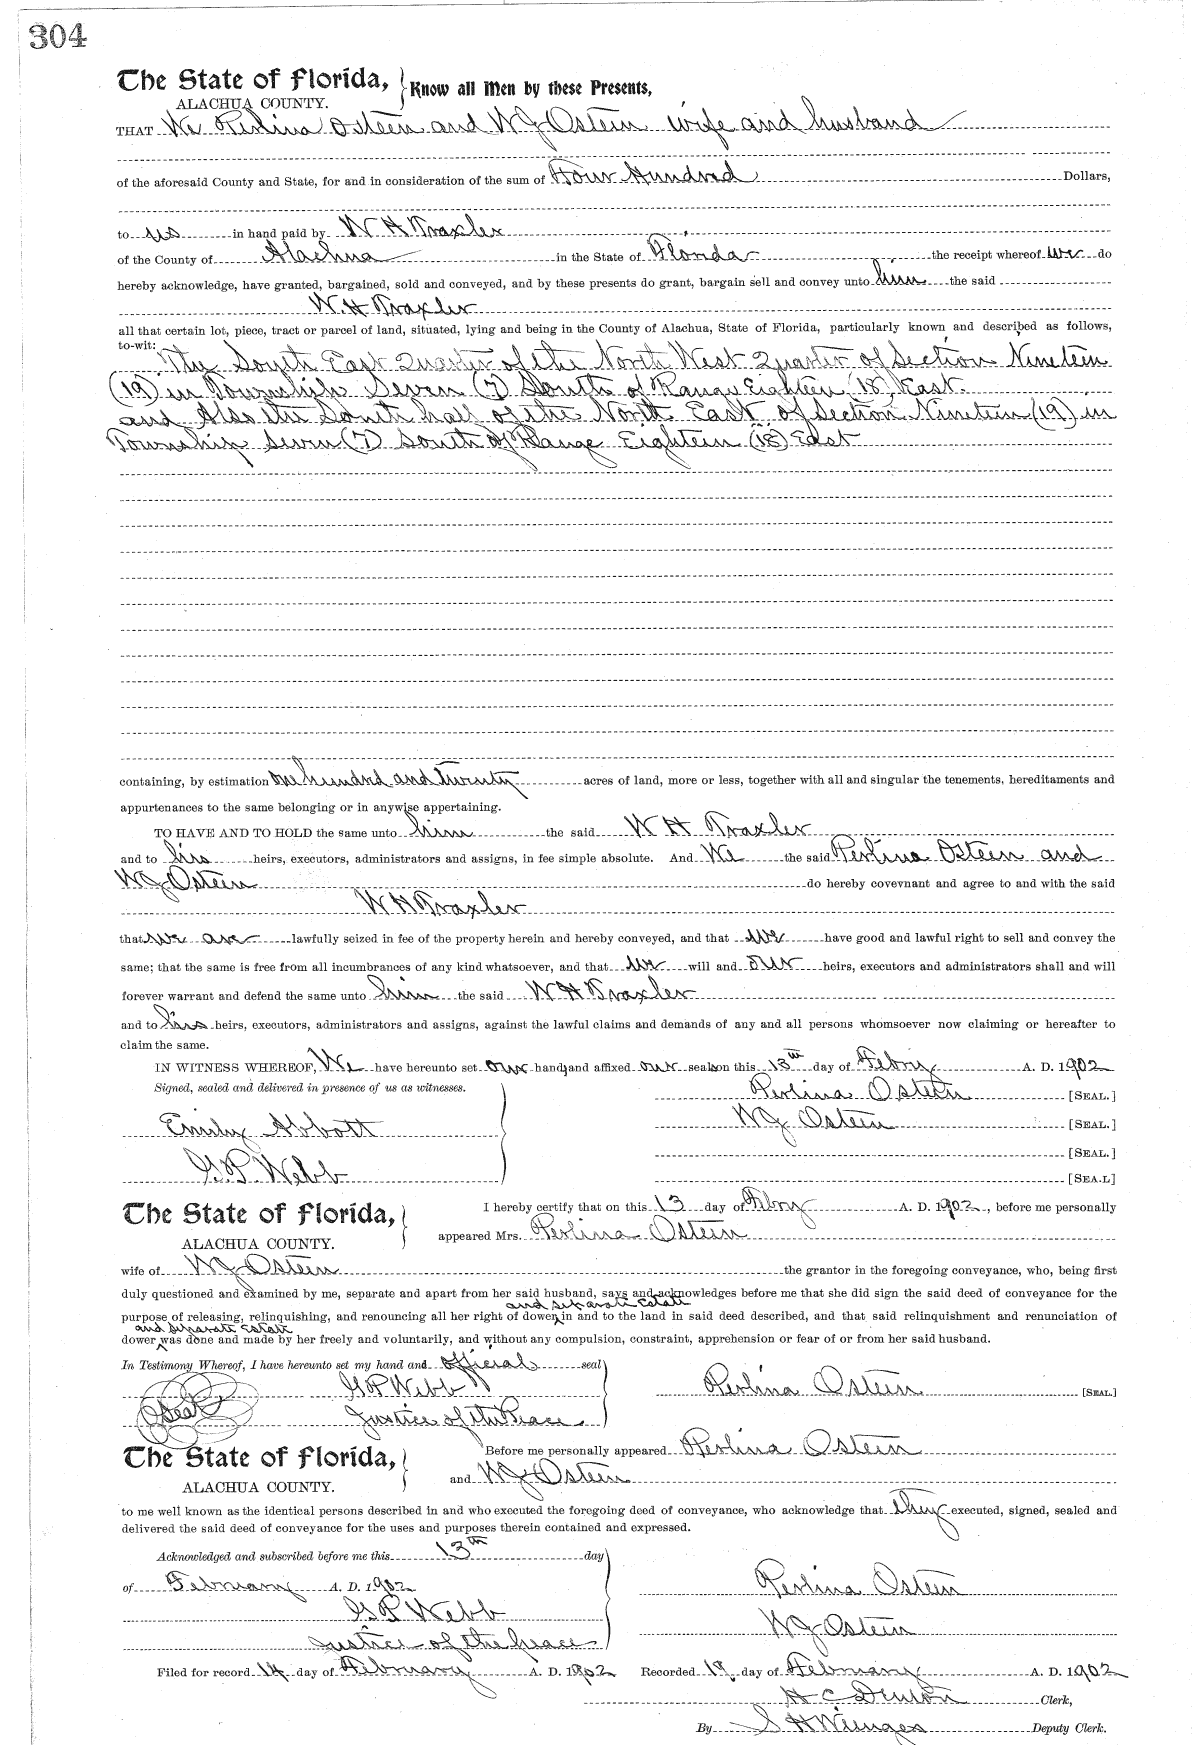 304
The State of Florida, Know all Men by these Presents,
ALACHUA COUNTY.
THAT We Perlina Osteen and WJ Osteen wife and husband
of the aforesaid County and State, for and in consideration of the sum of Four Hundred Dollars,
to us in hand paid by W H Traxler
of the County of Alachua in the State of Florida the receipt whereof we do
hereby acknowledge, have granted, bargained, sold and conveyed, and by these presents do grant, bargain sell and convey unto him the said
W. H Traxler
all that certain lot, piece, tract or parcel of land, situated, lying and being in the County of Alachua, State of Florida, particularly known and described as follows,
to-wit: The South East Quarter of the North West Quarter of Section Nineteen
(19) in Township Seven (7) South of Range Eighteen (18) East.
and Also the South half of the North East of Section Nineteen (19) in
Township Seven (7) South of Range Eighteen (18) East
containing, by estimation one hundred and twenty acres of land, more or less, together with all and singular the tenements, hereditaments and
appurtenances to the same belonging or in anywise appertaining.
TO HAVE AND TO HOLD the same unto him the said W H Traxler
and to his heirs, executors, administrators and assigns, in fee simple absolute. And We the said Perlina Osteen and
WJ Osteen do hereby covevnant and agree to and with the said
W H Traxler
that we are lawfully seized in fee of the property herein and hereby conveyed, and that we have good and lawful right to sell and convey the
same; that the same is free from all incumbrances of any kind whatsoever, and that we will and our heirs, executors and administrators shall and will
forever warrant and defend the same unto him the said W H Traxler
and to his heirs, executors, administrators and assigns, against the lawful claims and demands of any and all persons whomsoever now claiming or hereafter to
claim the same.
IN WITNESS WHEREOF, We have hereunto set our hands and affixed our seals on this 13th day of Febry A. D. 1902
Signed, sealed and delivered in presence of us as witnesses. Perlina Osteen [SEAL.]
Emily Abbott WJ Osteen [SEAL.]
[SEAL.]
G.P. Webb [SEA.L]
The State of Florida, I hereby certify that on this 13 day of Febry A. D. 1902, before me personally
ALACHUA COUNTY. appeared Mrs. Perlina Osteen
wife of WJ Osteen the grantor in the foregoing conveyance, who, being first
duly questioned and examined by me, separate and apart from her said husband, says and acknowledges before me that she did sign the said deed of conveyance for the
and separate Estate
purpose of releasing, relinquishing, and renouncing all her right of dower in and to the land in said deed described, and that said relinquishment and renunciation of
and separate Estate
dower was done and made by her freely and voluntarily, and without any compulsion, constraint, apprehension or fear of or from her said husband.
In Testimony Whereof, I have hereunto set my hand and official seal
G P Webb Perlina Osteen [SEAL.]
Seal Justice of the Peace.
The State of Florida, Before me personally appeared Perlina Osteen
ALACHUA COUNTY. and WJ Osteen
to me well known as the identical persons described in and who executed the foregoing deed of conveyance, who acknowledge that they executed, signed, sealed and
delivered the said deed of conveyance for the uses and purposes therein contained and expressed.
Acknowledged and subscribed before me this 13th day
of February A. D. 1902 Perlina Osteen
G P Webb WJ Osteen
Justice of the peace
Filed for record 14 day of February A. D. 1902 Recorded 19 day of February A. D. 1902
H C Denton Clerk,
By S H Wienges Deputy Clerk.